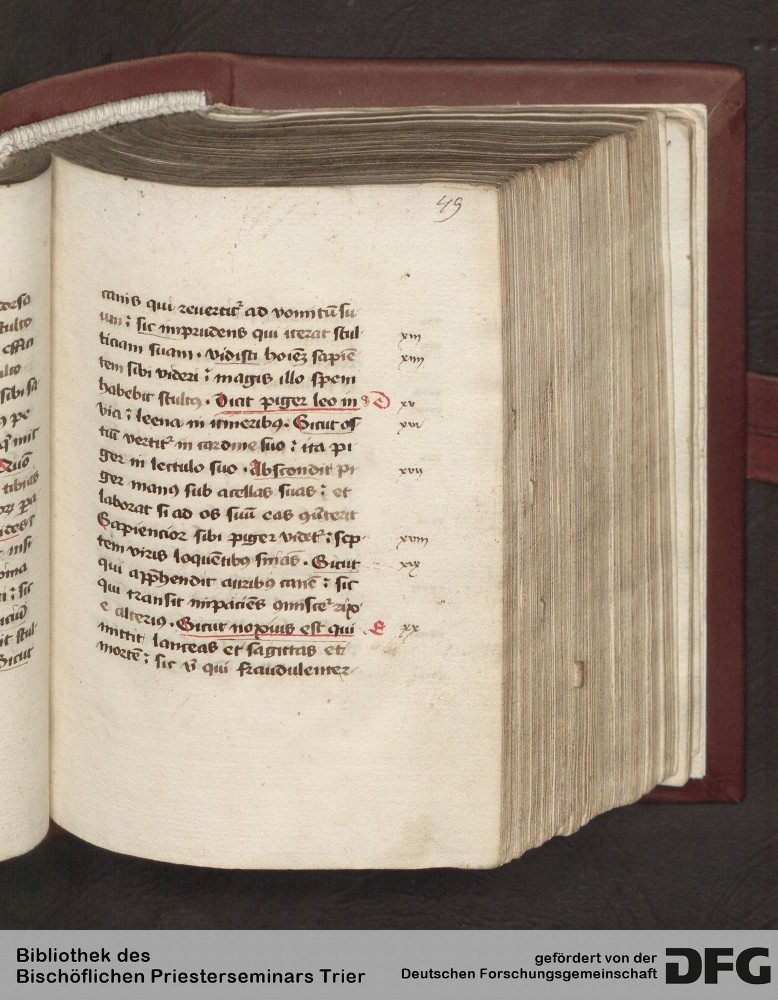 49
canis qui reuertit² ad vomitū su
um : sic inprudens qui iterat stul
ticiam suam . vidisti hoiēȝ sapiē
tem sibi videri : magis illo spem
habebit stultꝰ . Dicit piger leo in
via : leena in itineribꝰ . Sicut os
tiū vertit² in cardine suo : ita pi
ger in lectulo suo . Abscondit pi
ger manꝰ sub acellas suas : et
laborat si ad os suū eas ꝯũterit
Sapiencior sibi piger videt² : sep
tem viris loquētibꝰ sn̄ias . Sicut
qui app̄hendit auribꝰ canē : sic
qui transit inpaciēs ꝯmisce² rixe
e alteriꝰ . Sicut noxius est qui
mittit lanceas et sagittas et
mortē : sic v̄ qui fraudulenter
xiii
xiiii
D xv
xvi
xvii
xviii
xix
E xx
Bibliothek des
Bischöflichen Priesterseminars Trier
gefördert von der
Deutschen Forschungsgemeinschaft
DFG